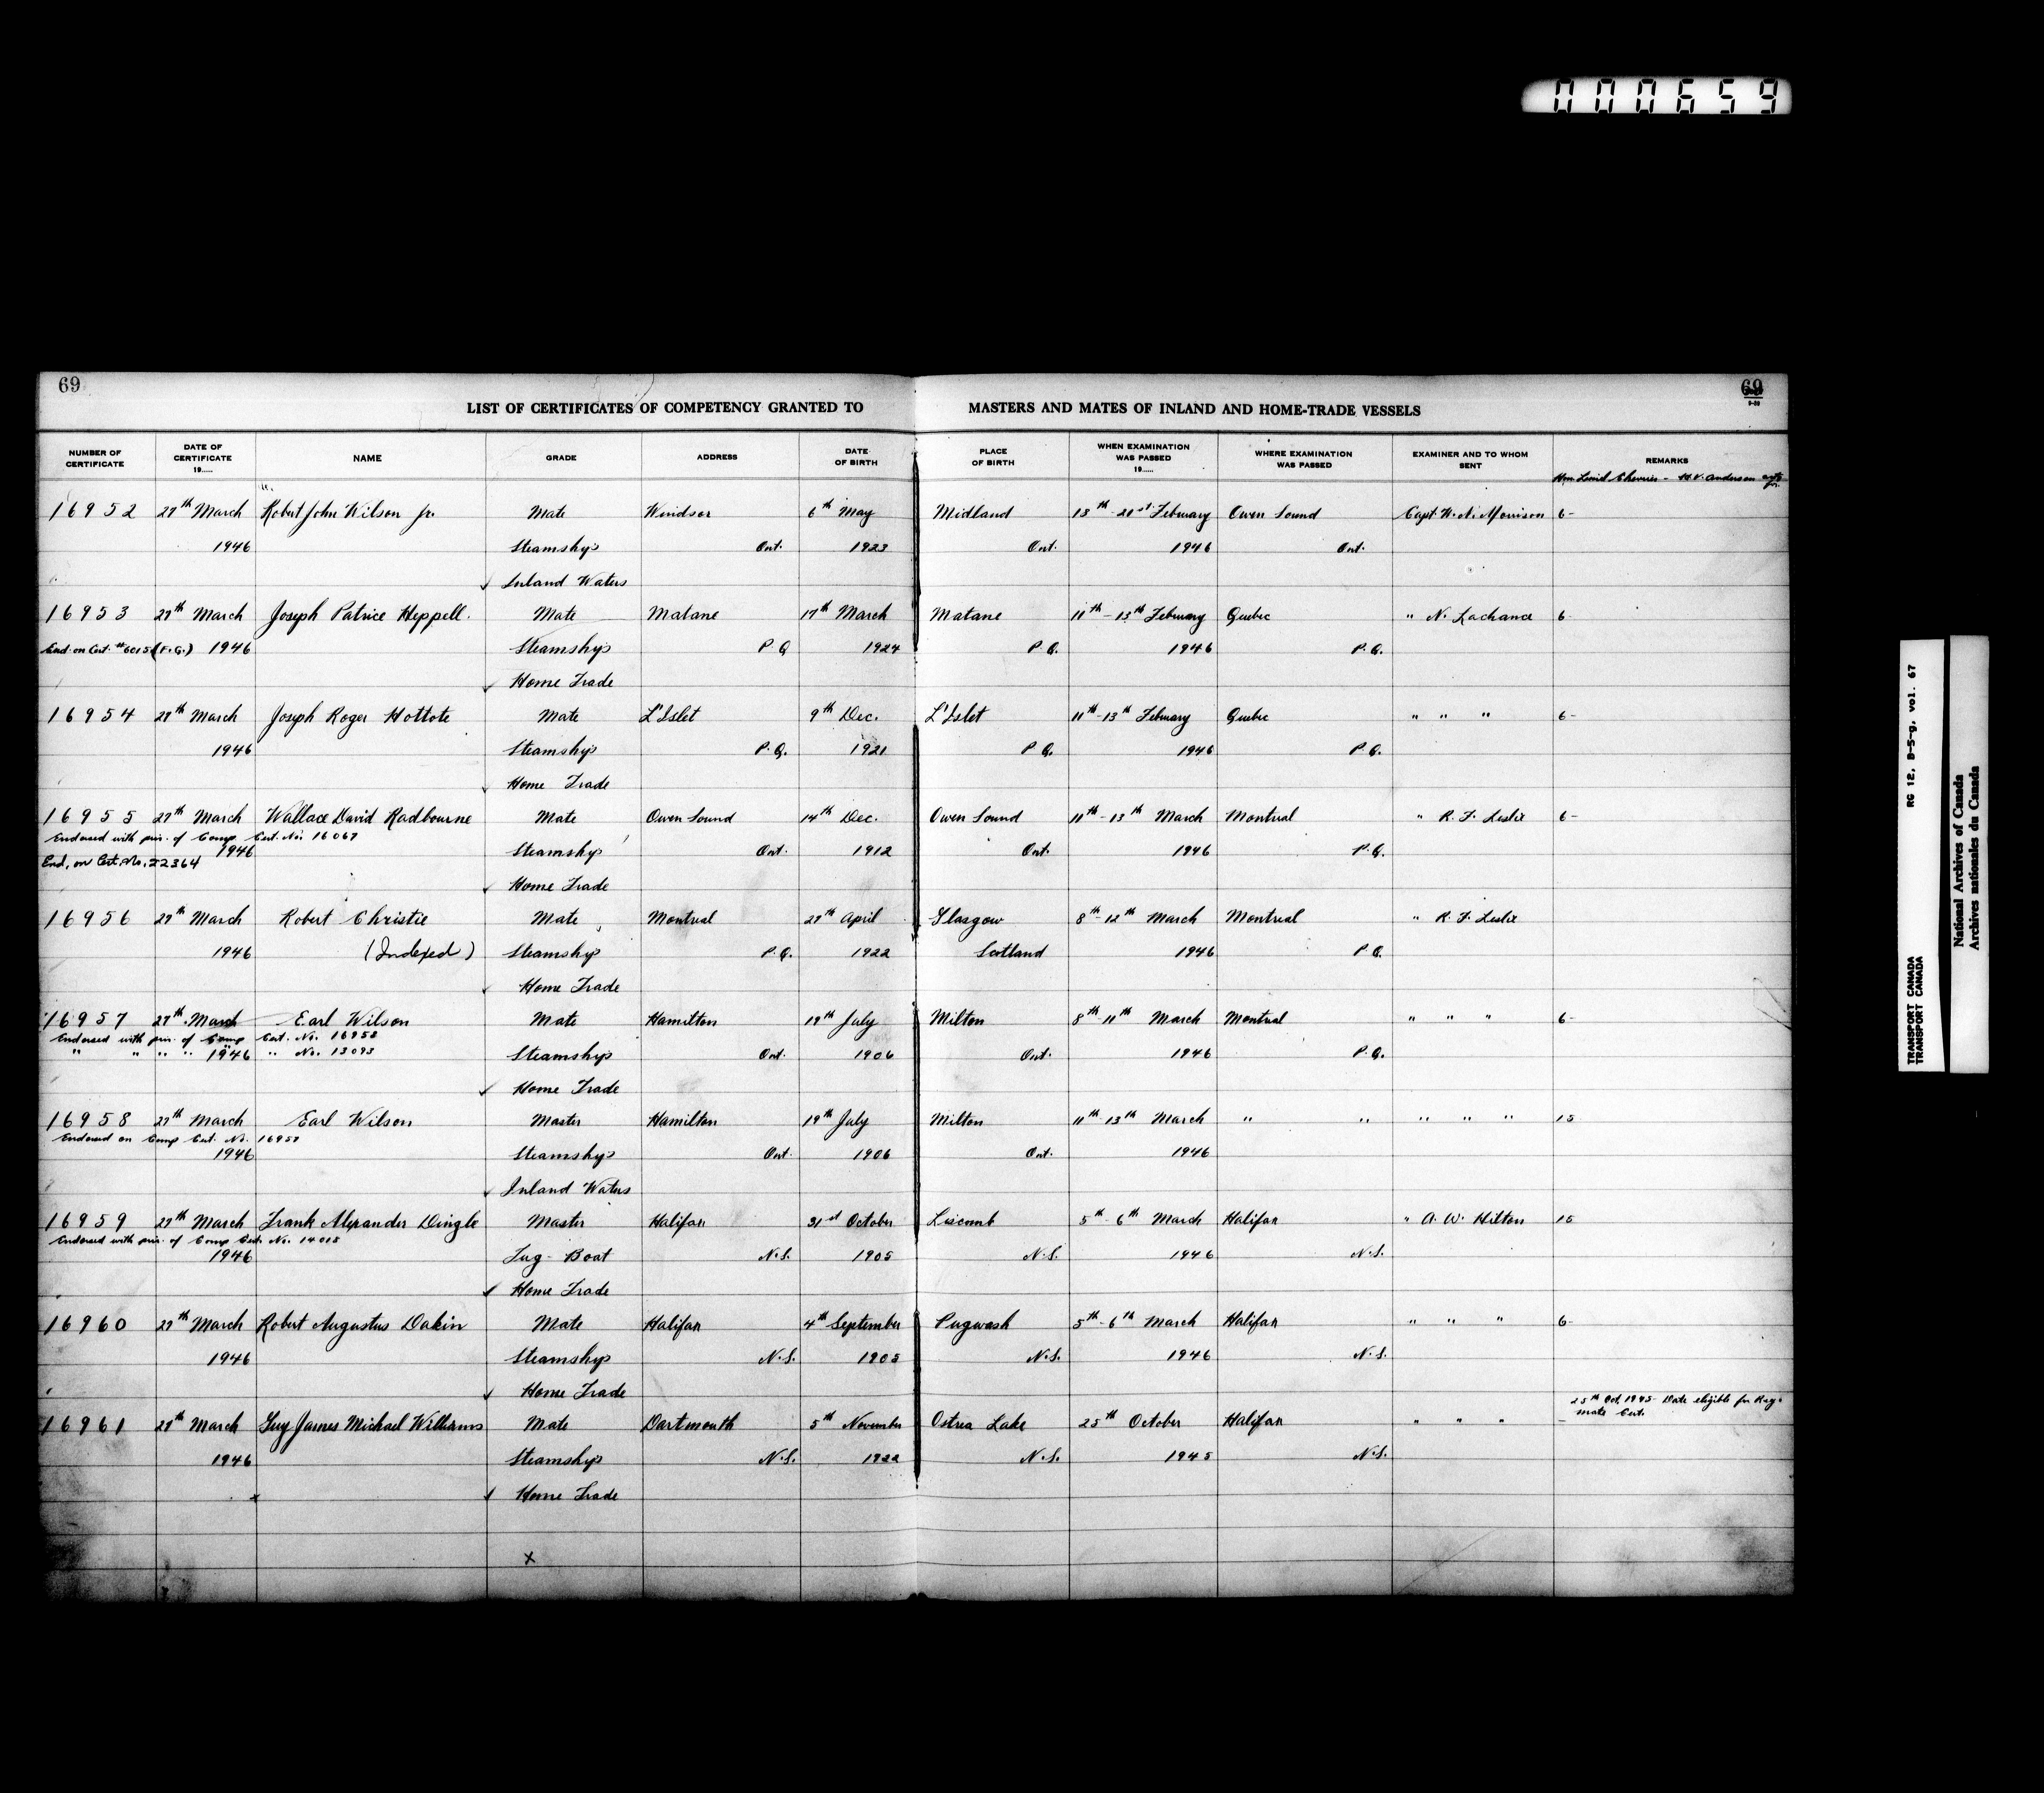 000659
69
69
9-39
LIST OF CERTIFICATES OF COMPETENCY GRANTED TO MASTERS AND MATES OF INLAND AND HOME-TRADE VESSELS
NUMBER OF CERTIFICATE DATE OF CERTIFICATE 19..... NAME GRADE ADDRESS DATE OF BIRTH PLACE OF BIRTH WHEN EXAMINATION WAS PASSED 19..... WHERE EXAMINATION WAS PASSED EXAMINER AND TO WHOM SENT REMARKS
Hon. Lionel Chevrier - H.V. Anderson
16952 27th March Robert John Wilson Jr. Mate Windsor 6th May Midland 18th-21st February Owen Sound Capt. W. N. Morrison 6-
1946 Steamship Ont. 1923 Ont. 1946 Ont.
Inland Waters
16953 27th March Joseph Patrice Heppell. Mate Matane 17th March Matane 11th-13th February Quebec " N. Lachance 6-
End. on Cert. #6015 (F.G.) 1946 Steamship P.Q. 1924 P.Q. 1946 P.Q.
Home Trade
16954 27th March Joseph Roger Hottote Mate L'Islet 9th Dec. L'Islet 11th-13th February Quebec " " " 6-
1946 Steamship P.Q. 1921 P.Q. 1946 P.Q.
Home Trade
16955 27th March Wallace David Radbourne Mate Owen Sound 14th Dec. Owen Sound 11th-13th March Montreal " R. F. Leslie 6-
Endorsed with par. of Comp Cert. No. 16067
1946 Steamship Ont. 1912 Ont. 1946 P.Q.
End. on Cert. No. 22364
Home Trade
16956 27th March Robert Christie Mate Montreal 27th April Glasgow 8th-12th March Montreal " R. F. Leslie
1946 (Indexed) Steamship P.Q. 1922 Scotland 1946 P.Q.
Home Trade
16957 27th March Earl Wilson Mate Hamilton 19th July Milton 8th-11th March Montreal " " " 6-
Endorsed with par. of Comp Cert. No. 16958
" " " " 1946 " No. 13093 Steamship Ont. 1906 Ont. 1946 P.Q.
Home Trade
16958 27th March Earl Wilson Master Hamilton 19th July Milton 11th-13th March " " " " " 15
Endorsed on Comp Cert. No. 16957
1946 Steamship Ont. 1906 Ont. 1946
Inland Waters
16959 27th March Frank Alexander Dingle Master Halifax 31st October Liscomb 5th-6th March Halifax " A. W. Hilton 15
Endorsed with par. of Comp Cert. No. 14015
1946 Tug-Boat N.S. 1905 N.S. 1946 N.S.
Home Trade
16960 27th March Robert Augustus Dakin Mate Halifax 4th September Pugwash 5th-6th March Halifax " " " 6-
1946 Steamship N.S. 1905 N.S. 1946 N.S.
Home Trade
25th Oct. 1945 - Date eligible for
mate Cert.
16961 27th March Guy James Michael Williams Mate Dartmouth 5th November Ostrea Lake 25th October Halifax " " " -
1946 Steamship N.S. 1922 N.S. 1945 N.S.
x Home Trade
x
RG 12, B-5-g, vol. 67
TRANSPORT CANADA
TRANSPORT CANADA
National Archives of Canada
Archives nationales du Canada